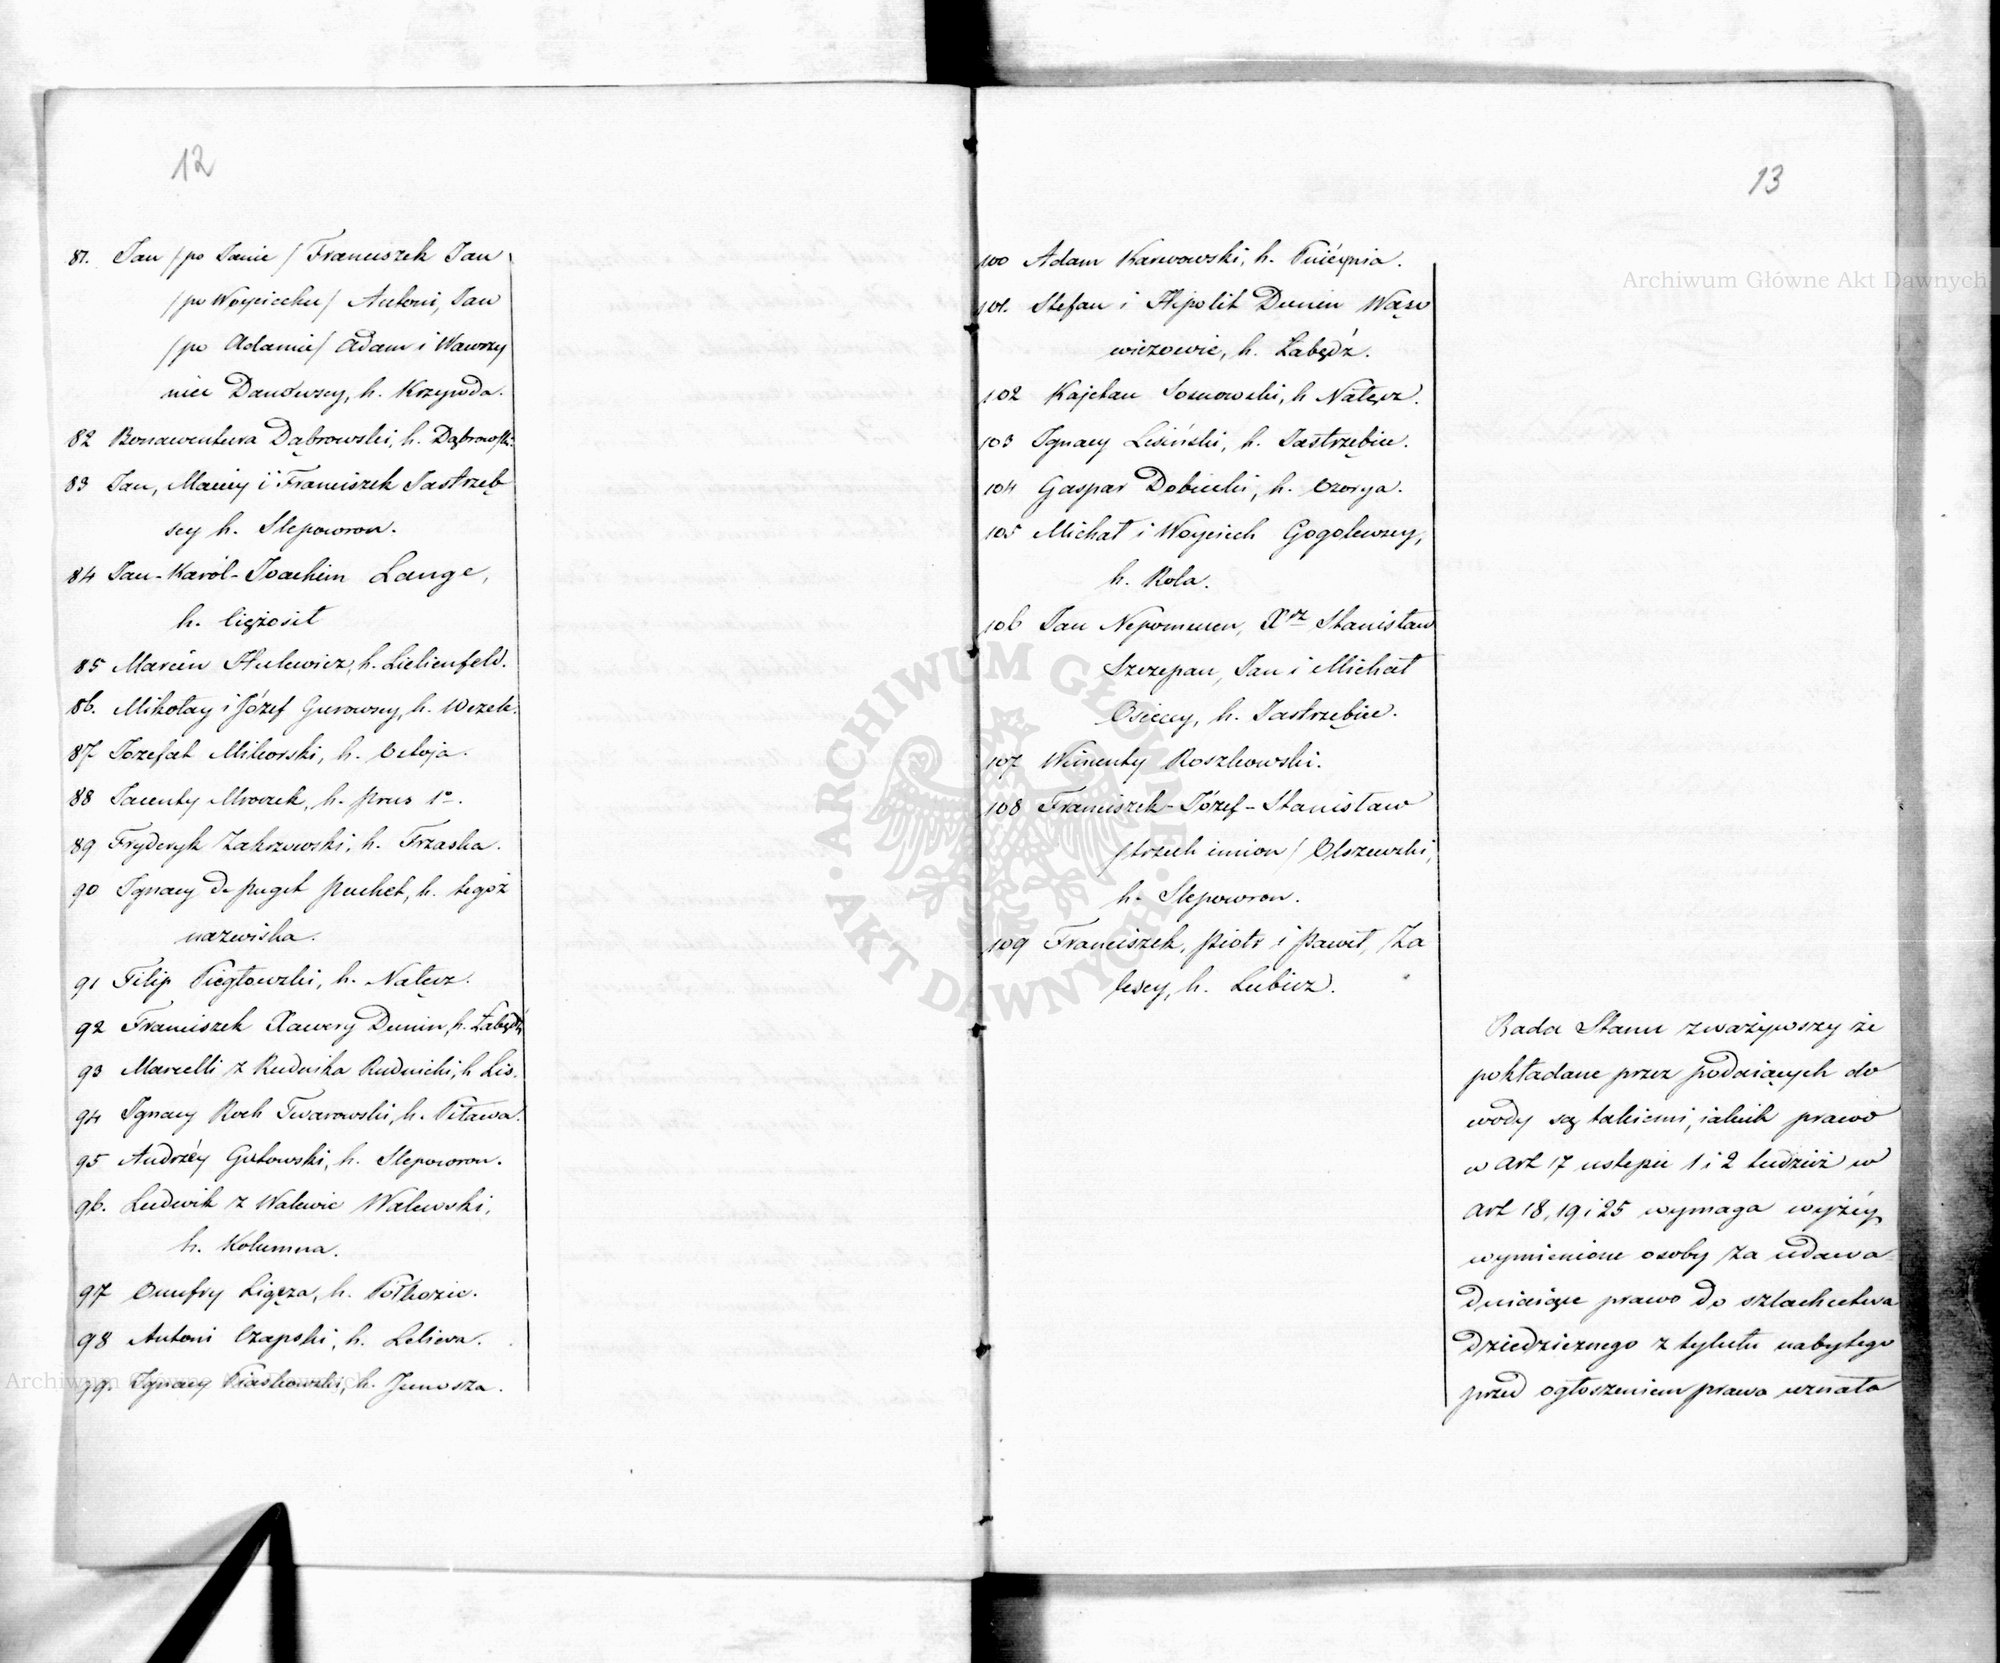 12
81. Jan /po Janie/ Franciszek Jan
/po Woyciechu/ Antoni, Jan
/po Adamie/ Adam i Wawrzy
niec Danówscy, h. Krzywda.
82 Bonawentura Dąbrowski, h. Dąbrowski.
83 Jan, Maciey i Franciszek Jastrzęb
scy h. Slepowron.
84 Jan-Karól-Joachim Lange,
h. Ciężosił
85 Marcin Hulewicz, h. Lielienfeld.
86. Mikołay i Józef Gurowscy, h. Wczele.
87 Józefat Mikorski, h. Ostoja.
88 Jacenty Mroczek, h. Prus 1º.
89 Fryderyk Zakrzewski, h. Trzaska.
90 Ignacy de Puget Puchet, h. tegoż
nazwiska.
91 Filip Piegłowski, h. Nałęcz.
92 Franciszek Xawery Dunin, h. Łabędź
93 Marcelli z Rudnika Rudnicki, h Lis.
94 Ignacy Roch Twarowski, h. Pilawa.
95 Andrzéy Gutowski, h. Slepowron.
96. Ludwik z Walewic Walewski,
h. Kolumna.
97 Onufry Ligęza, h. Półkozic.
98 Antoni Czapski, h. Leliwa.
99. Ignacy Piaskowski, h. Junosza.
13
100 Adam Karwowski, h. Pniéynia.
101. Stefan i Hipolit Dunin Wąso
wiczowie, h. Łabędź.
102 Kajetan Sosnowski, h Nałęcz.
103 Ignacy Lesiński, h. Jastrzębiec.
104 Gaspar Dobiecki, h. Ozorya.
105 Michał i Woyciech Gogolewscy,
h. Rola.
106 Jan Nepomucen, Xdz Stanisław
Szczepan, Jan i Michał
Osieccy, h. Jastrzębiec.
107 Wincenty Roszkowski.
108 Franciszek-Józef-Stanisław
/trzech imion/ Olszewski,
h. Slepowron.
109 Franciszek, Piotr i Paweł, Za
lescy, h. Lubicz.
Rada Stanu zważywszy że
pokładane przez podaiących do
wody są takiemi, iakich prawo
w art 17 ustępie 1 i 2 tudzież w
art 18, 19 i 25 wymaga wyżéy
wymienione osoby za udawa-
dniaiące prawo do szlachectwa
dziedzicznego z tytułu nabytego
przed ogłoszeniem prawa uznała
Archiwum Główne Akt Dawnych
Archiwum Główne Akt Dawnych
ARCHIWUM GŁÓWNE
AKT DAWNYCH